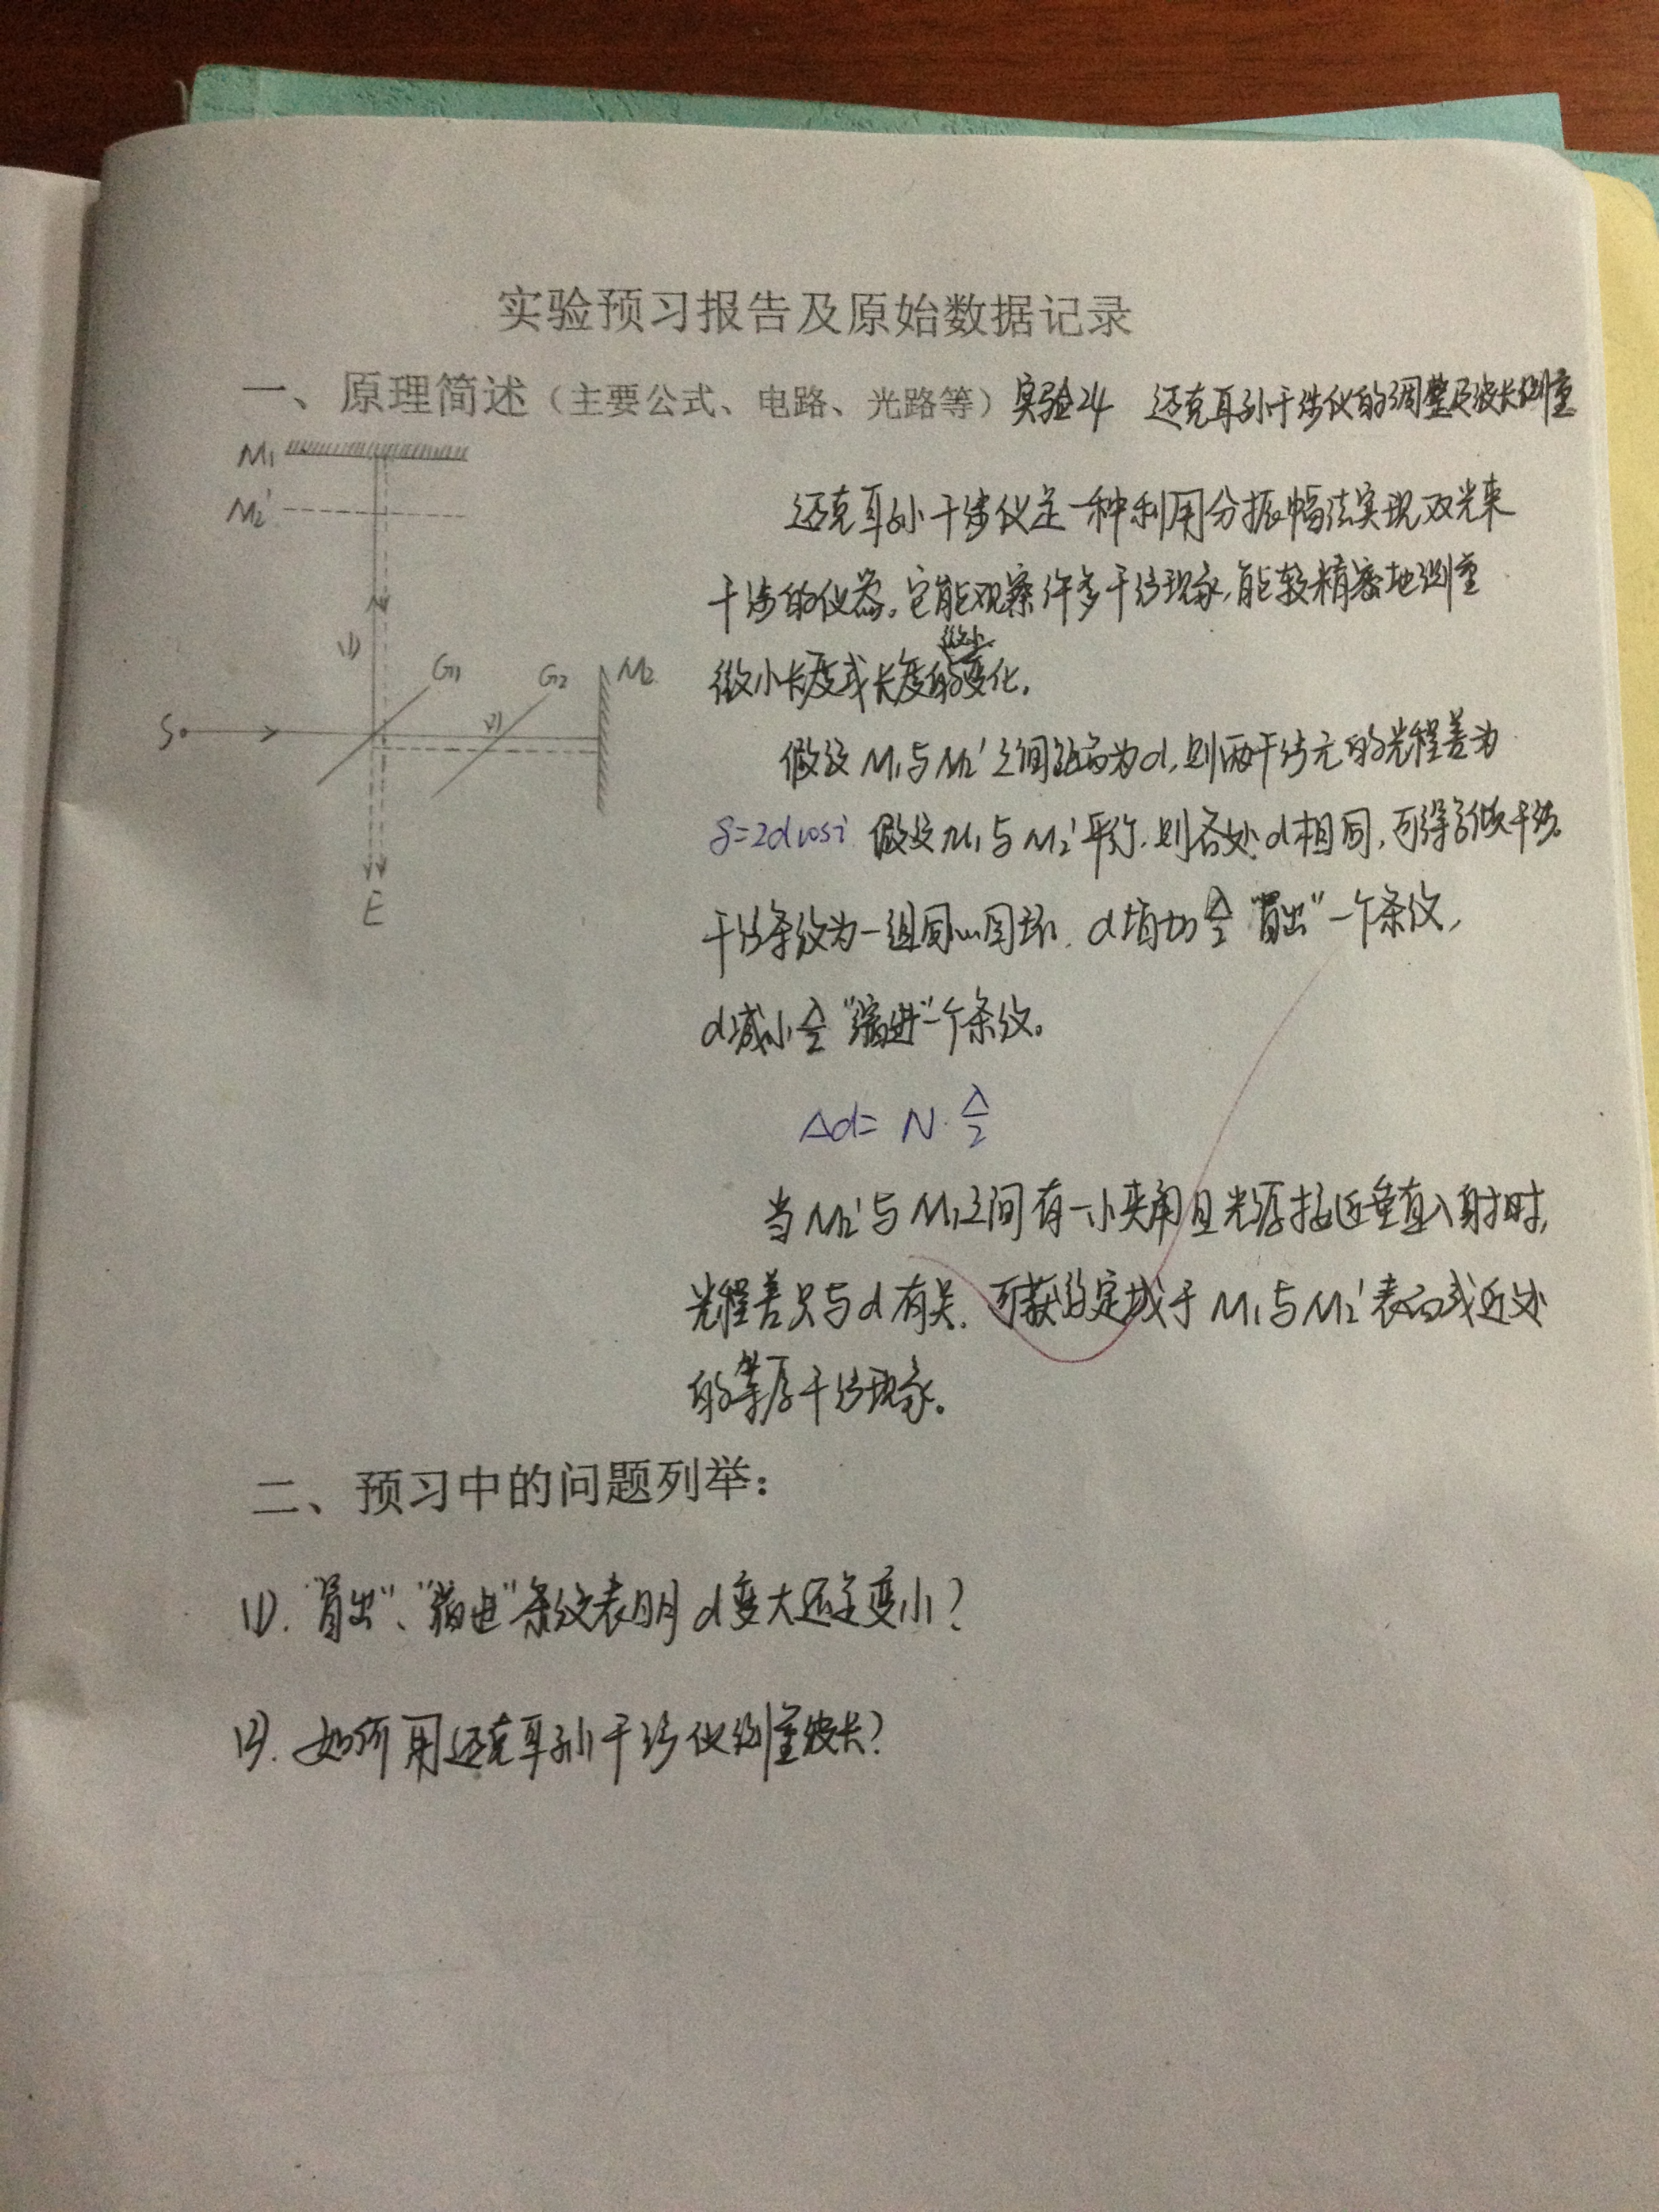 实验预习报告及原始数据记录
一、原理简述（主要公式、电路、光路等）实验24 迈克耳孙干涉仪的调整及波长测量
M₁
M₂'
(1)
G₁
G₂
M₂
S
(2)
E
迈克耳孙干涉仪是一种利用分振幅法实现双光束
干涉的仪器。它能观察许多干涉现象,能较精密地测量
微小
微小长度或长度的变化。
假设M₁与M₂'之间距离为d,则两干涉光的光程差为
δ=2dcosi 假设M₁与M₂'平行,则各处d相同,可得等倾干涉。
干涉条纹为一组同心圆环。d增加λ/2"冒出"一个条纹,
d减小λ/2"缩进"一个条纹。
Δd=N·λ/2
当M₂'与M₁之间有一小夹角且光源接近垂直入射时,
光程差只与d有关。可获的定域于M₁与M₂'表面或近处
的等厚干涉现象。
二、预习中的问题列举：
(1). "冒出"、"缩进"条纹表明d变大还是变小?
(2). 如何用迈克耳孙干涉仪测量波长?